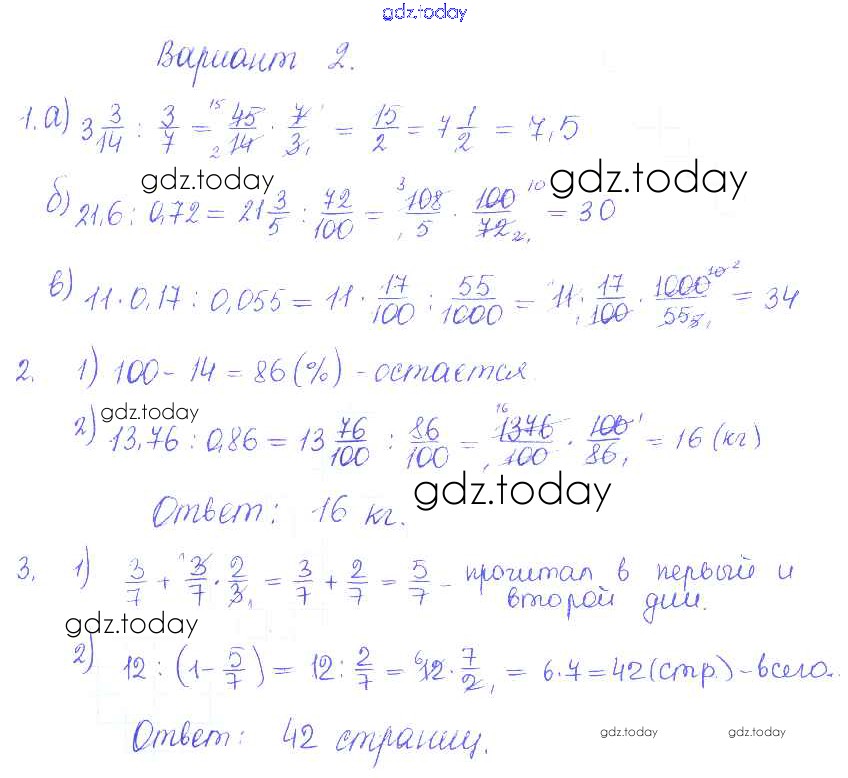 gdz.today
Вариант 2.
1. а) 3 3/14 : 3/7 = 45/14 · 7/3 = 15/2 = 7 1/2 = 7,5
gdz.today gdz.today
б) 21,6 : 0,72 = 21 3/5 : 72/100 = 108/5 · 100/72 = 30
в) 11 · 0,17 : 0,055 = 11 · 17/100 : 55/1000 = 11 · 17/100 · 1000/55 = 34
2. 1) 100 - 14 = 86 (%) - остаётся.
gdz.today
2) 13,76 : 0,86 = 13 76/100 : 86/100 = 1376/100 · 100/86 = 16 (кг)
gdz.today
Ответ: 16 кг.
3. 1) 3/7 + 3/7 · 2/3 = 3/7 + 2/7 = 5/7 - прочитал в первый и
второй дни.
gdz.today
2) 12 : (1 - 5/7) = 12 : 2/7 = 12 · 7/2 = 6 · 7 = 42 (стр.) - всего.
Ответ: 42 страниц.
gdz.today gdz.today